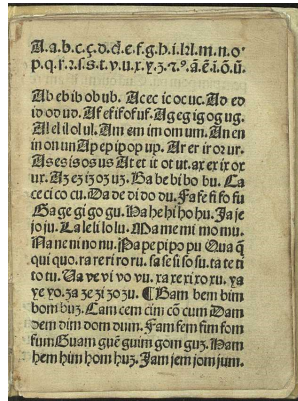 A.a.b.c.ç.d.d.e.f.g.h.i.k.l.m.n.o
p.q.r.ꝛ.s.ſ.t.v.u.x.y.ʒ.ꝛ.ꝯ.ã.ẽ.ĩ.õ.ũ.
Ab eb ib ob ub. Ac ec ic oc uc. Ad ed
id od ud. Af ef if of uf. Ag eg ig og ug.
Al el il ol ul. Am em im om um. An en
in on un Ap ep ip op up. Ar er ir or ur.
As es is os us At et it ot ut. ax ex ix ox
ux. Aʒ eʒ iʒ oʒ uʒ. Ba be bi bo bu. Ca
ce ci co cu. Da de di do du. Fa fe fi fo fu
Ga ge gi go gu. Ha he hi ho hu. Ja je
jo ju. La le li lo lu. Ma me mi mo mu.
Na ne ni no nu. Pa pe pi po pu Qua q̃
qui quo. ra re ri ro ru. ſa ſe ſi ſo ſu. ta te ti
to tu. Ua ve vi vo vu. xa xe xi xo xu. ya
ye yo. ʒa ʒe ʒi ʒo ʒu. ¶ Bam bem bim
bom buʒ. Cam cem cim cõ cum Dam
dem dim dom dum. Fam fem fim fom
fum Guam guẽ guim gom guʒ. Ham
hem him hom huʒ. Jam jem jom jum.